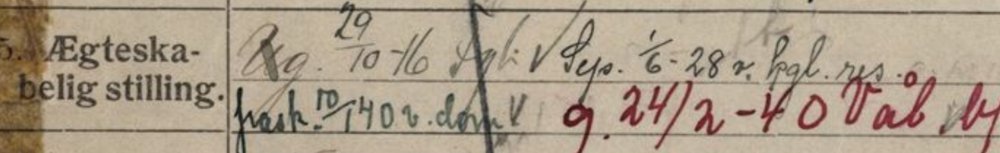 5. Ægteska-
belig stilling.
Ug. 29/10-16 Sep. 1/6-28 v. kgl. res.
frask. 10/1 40 v. dom g. 24/2-40 Våb by